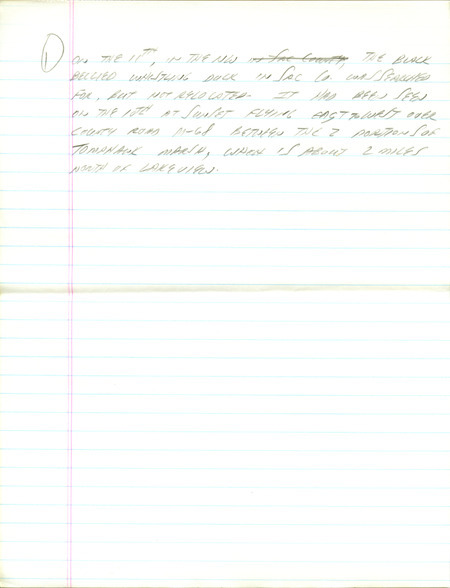 ① ON THE 11TH, IN THE NW in Sac County, THE BLACK
BELLIED WHISTLING DUCK IN SAC CO. WAS SEARCHED
FOR, BUT NOT RELOCATED. IT HAD BEEN SEEN
ON THE 10TH AT SUNSET FLYING EAST TO WEST OVER
COUNTY ROAD M-68 BETWEEN THE 2 PORTIONS OF
TOMAHAWK MARSH, WHICH IS ABOUT 2 MILES
NORTH OF LAKEVIEW.